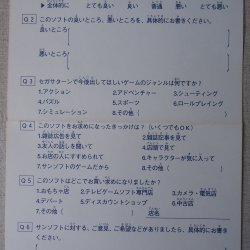 ▶全体的に ▶とても良い ▶良い ▶普通 ▶悪い ▶とても悪い
Q2 このソフトの良いところ、悪いところを、具体的にお書きください。
良いところ
悪いところ
Q3 セガサターンで今後出してほしいゲームのジャンルは何ですか?
1.アクション 2.アドベンチャー 3.シューティング
4.パズル 5.スポーツ 6.ロールプレイング
7.シミュレーション 8.その他( )
Q4 このソフトをお求めになったきっかけは?(いくつでもOK)
1.雑誌広告を見て 2.雑誌記事を見て
3.友人の話しを聞いて 4.店頭で見て
5.お店の人にすすめられて 6.キャラクターが気に入って
7.サンソフトのゲームだから 8.その他( )
Q5 このソフトはどこでお買い求めになりましたか?
1.おもちゃ店 2.テレビゲームソフト専門店 3.カメラ・電気店
4.デパート 5.ディスカウントショップ 6.中古店
7.その他( ) 店名
Q6 サンソフトに対する、ご意見、ご希望などがありましたら、具体的にお書きください。